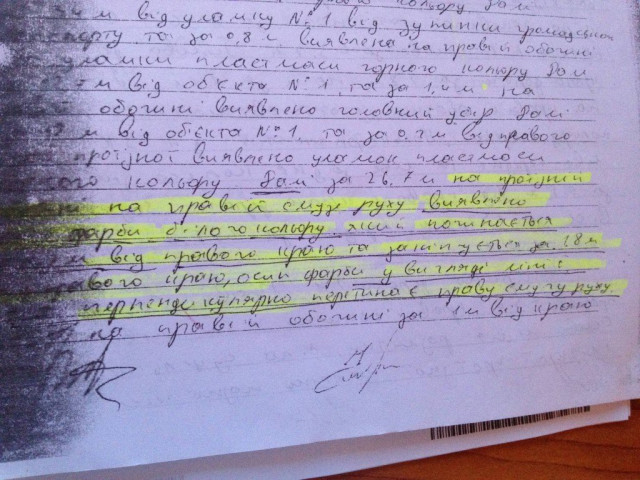 кольору Далі
м від уламку № 1 від зупинки громадського
та за 0,8 м виявлена на правій обочині
уламки пластмаси чорного кольору Далі
м від об'єкта № 1, та за 1,4 м на
обочині виявлено головний убір Далі
м від об'єкта № 1, та за 0,7 м від правого
проїзної виявлено уламок пластмаси
кольору Далі за 26,7 м на проїзній
на правій смузі руху виявлено
фарби білого кольору який починається
м від правого краю та закінчується за 1.8 м
правого краю, осип фарби у вигляді лінії
перпендикулярно перетинає праву смугу руху
на правій обочині за 1м від краю